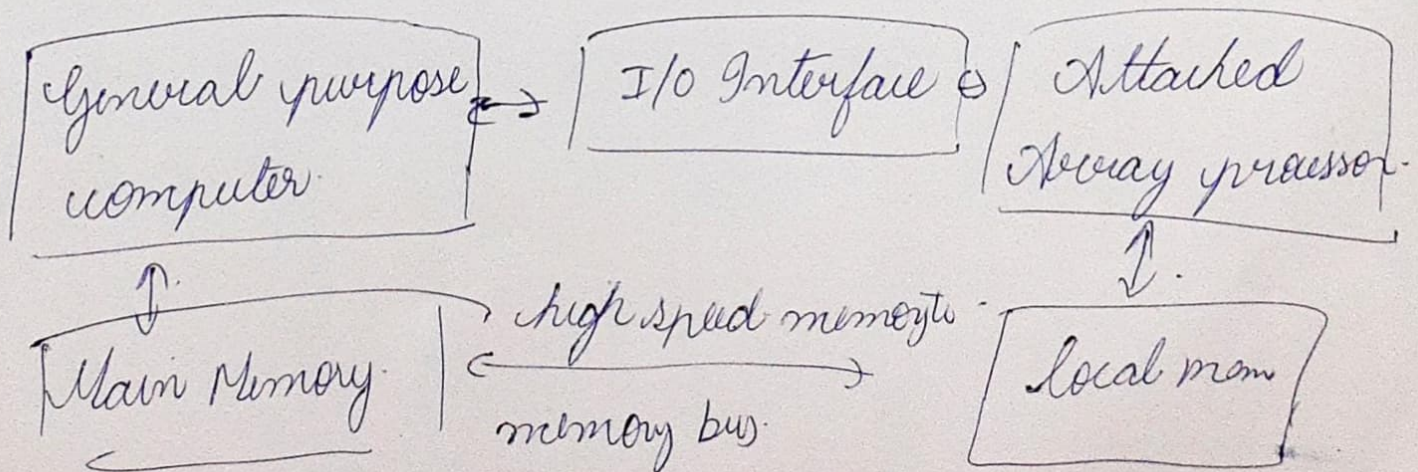 General purpose
computer.
I/O Interface
Attached
Array processor.
Main Memory.
high speed memory to
memory bus.
local mem